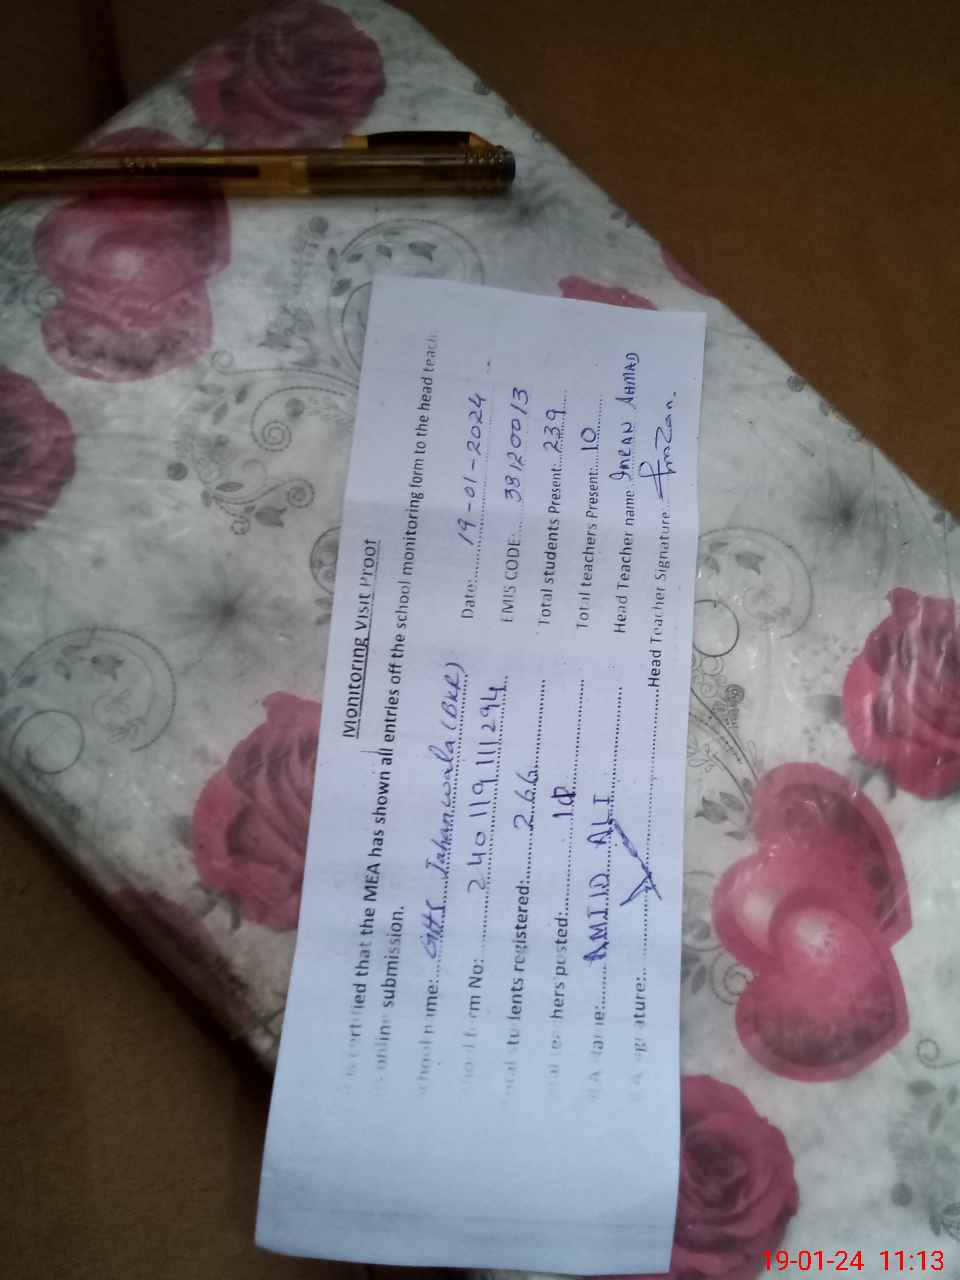 Monitoring Visit Proof
It is certified that the MEA has shown all entries off the school monitoring form to the head teach
online submission.
School name:.....GHS Jahanwala (BKR) Date:.....19-01-2024
School form No:.....240119111294 EMIS CODE:.....38120013
Total students registered:.....266 Total students Present:.....239
Total teachers posted:.....10 Total teachers Present:.....10
MEA Name:.....AMJID ALI Head Teacher name.....IMRAN AHMAD
MEA signature:..... Head Teacher Signature
19-01-24 11:13